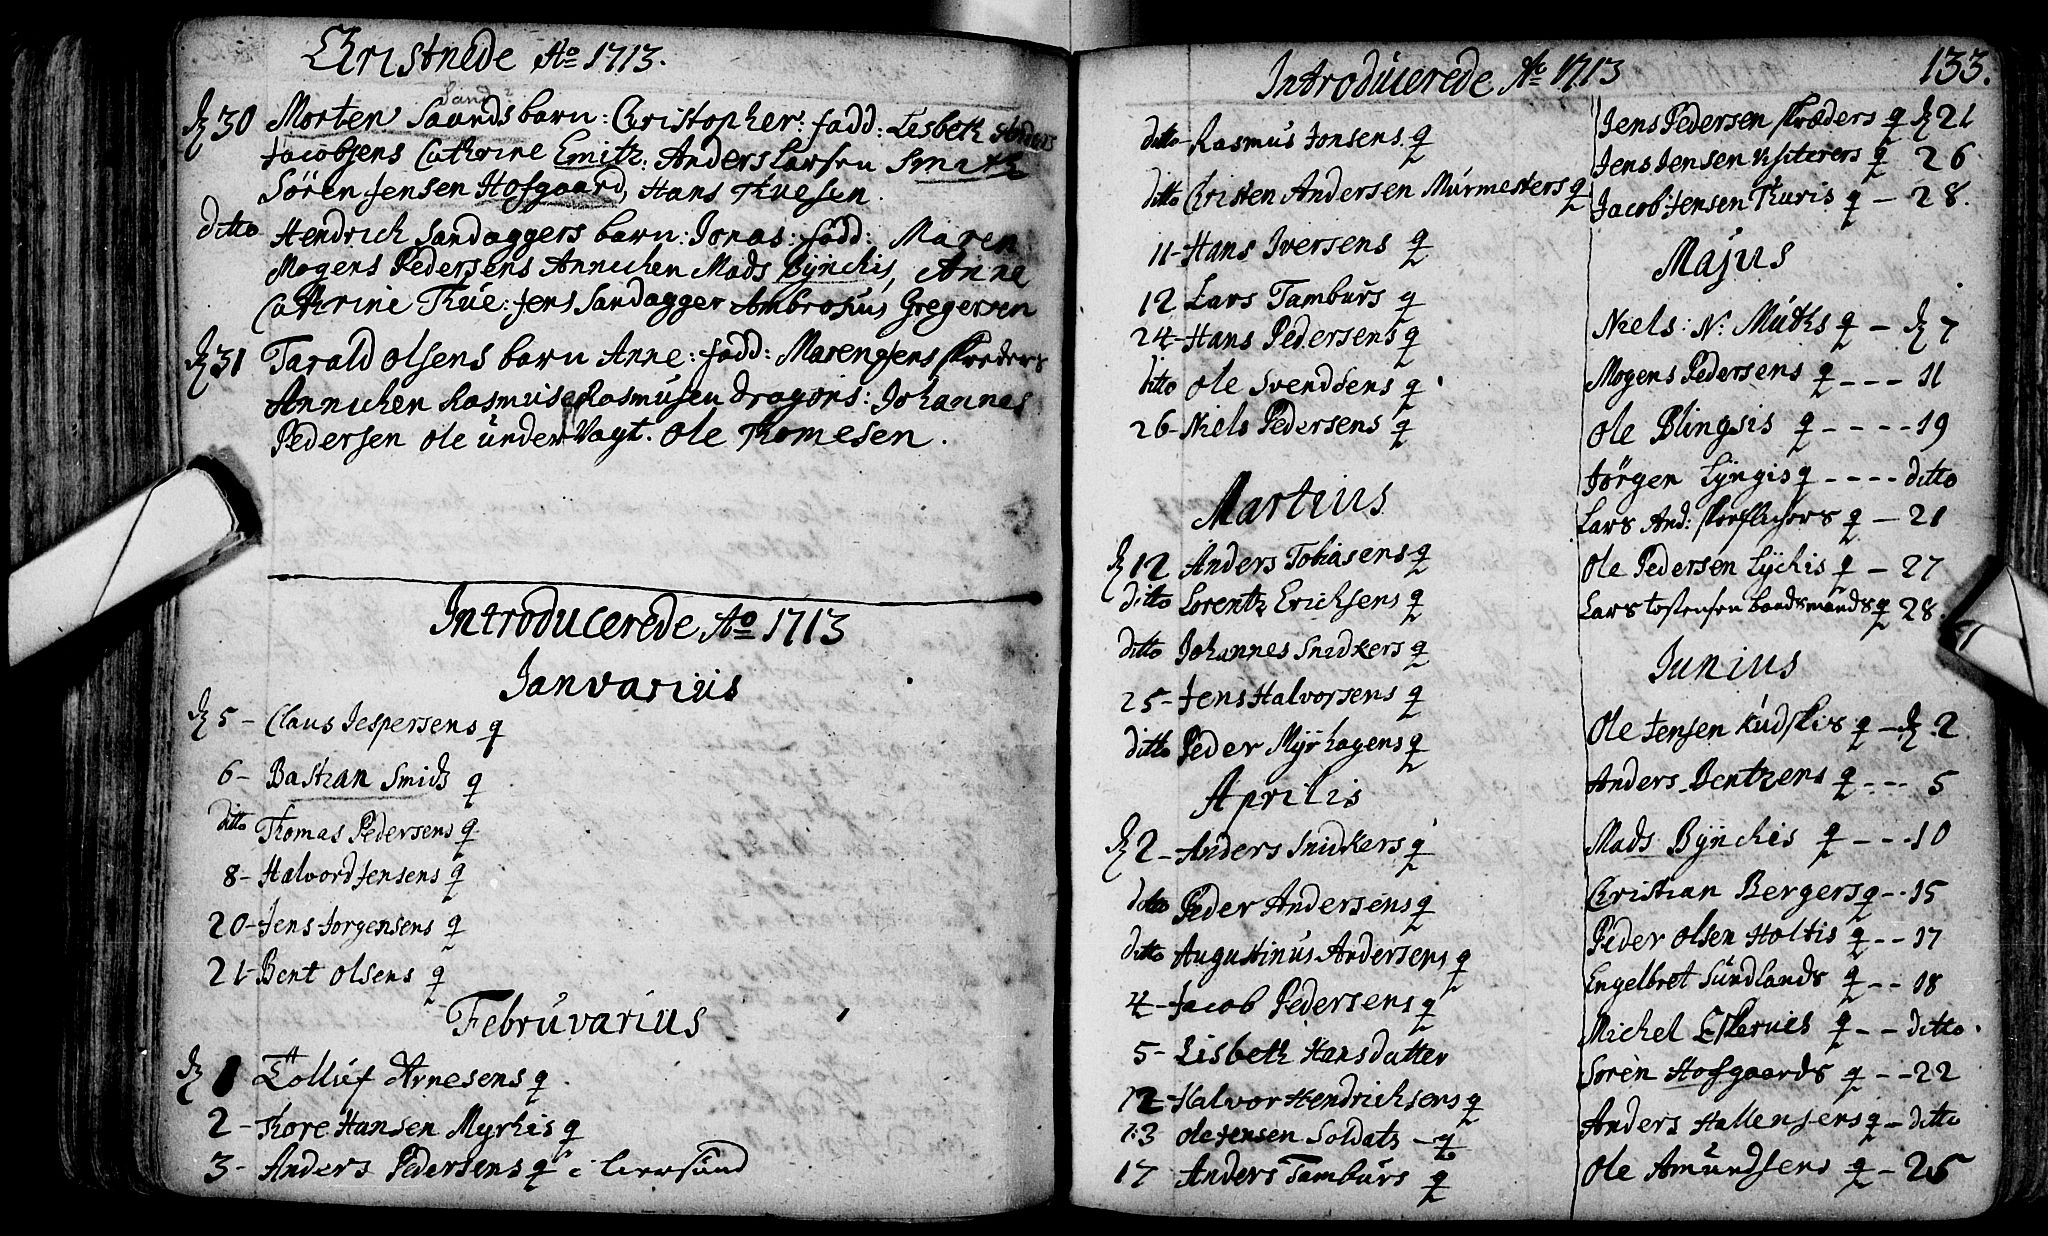 Christnede Ao 1713.
Sand?
d 30 Morten Saands barn: Christopher: fadd: Lisbeth Anders
Jacobsens Cathrine Emitz. Anders Larsen Smith
Søren Jensen Hofgaard, Hans Thuesen.
ditto Hendrich Sandaggers barn: Jonas: fadd: Maren
Mogens Pedersens Annichen Mads Bÿnchis, Anne
Cathrine Thue: Jens Sandagger Ambrosius Gregersen
d 31 Tarald Olsens barn Anne: fadd: Maren Jens Skreders
Annichen Rasmuses Rasmusen dragons: Johannes
Pedersen Ole under Vagt. Ole Thomesen.
Introducerede Ao 1713
Januarius
d 5 - Claus Jespersens q
6 - Bastian Smids q
ditto Thomas Pedersens q
8 - Halvord Jensens q
20 - Jens Jorgensens q
21 - Bent Olsens q
Februvarius
d 1 Tolluf Arnesens q
2 - Thore Hansen Myrhis q
3 - Anders Pedersens q i
Introducerede Ao 1713
133.
ditto - Rasmus Jonsens q
ditto Christen Andersen Murmesters q
11 - Hans Iversens q
12 Lars Tamburs q
24 - Hans Pedersens q
ditto Ole Svendsens q
26 - Niels Pedersens q
Martius
d 12 Anders Tobiasens q
ditto Lorentz Erichsens q
ditto Johannes Snidkers q
25 - Jens Halvorsens q
ditto Peder Myrhagens q
Aprilis
d 2 - Anders Snidkers q
ditto Peder Andersens q
ditto Augustinus Andersens q
4 - Jacob Pedersens q
5 - Lisbeth Hansdatter
12 - Halvor Hendrichsens q
13 Ole Jensen Soldats - q
17 - Anders Tamburs q
Jens Pedersen Skræders q d 21
Jens Jensen Visiterers q 26
Jacob Jensen Thuris q - 28.
Majus
Niels: N: Muths q - d 7
Mogens Pedersens q - - - 11
Ole Blingsis q - - - - 19
Jörgen Lÿngis q - - - - ditto
Lars And: q - 21
Ole Pedersen Lÿchis q - 27
Lars Tostensen baadsmands q 28.
Junius
Ole Jensen Kudskis q - d 2
Anders Bentzens q - - - 5
Mads Bÿnchis q - - - 10
Christian Bergers q - - 15
Peder Olsen Holtis q - - 17
Engelbret Sundlands q - - 18
Michel Eskervis q - - ditto.
Sören Hofgaards q - - 22
Anders Hallensens q - ditto
Ole Amundsens q - 25